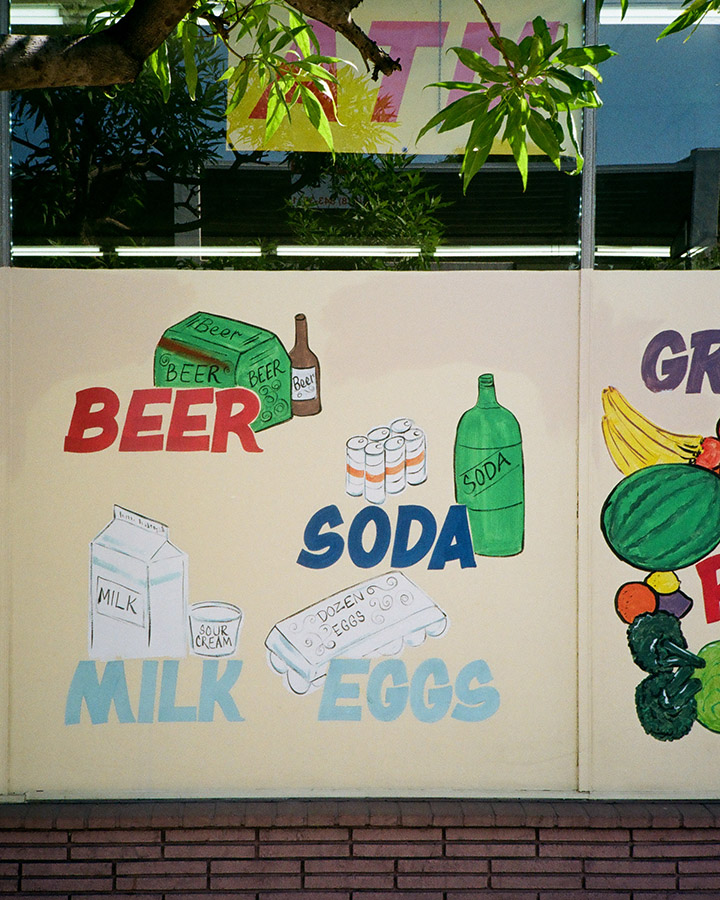 ATM
Beer
BEER
BEER
Beer
BEER
GR
SODA
SODA
MILK
SOUR
CREAM
DOZEN
EGGS
MILK
EGGS